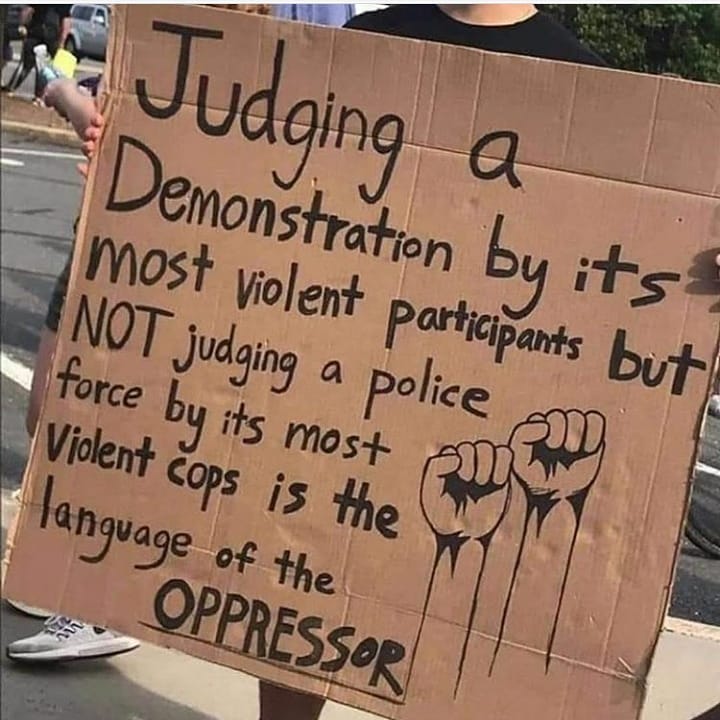 Judging a
Demonstration by its
most violent participants but
NOT judging a police
force by its most
Violent cops is the
language of the
OPPRESSOR